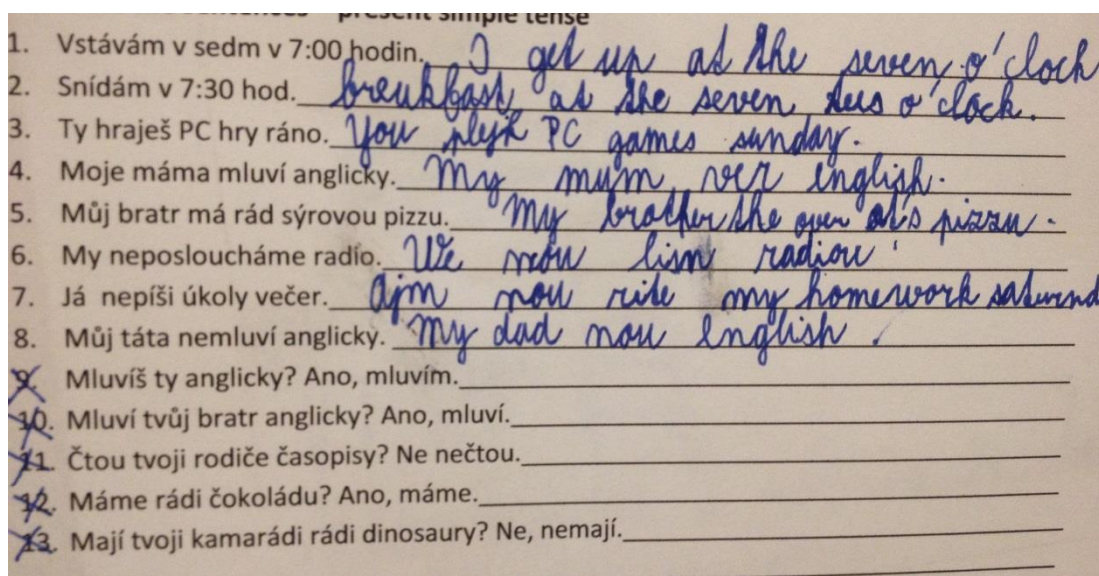 sentences – present simple tense
1. Vstávám v sedm v 7:00 hodin. I get up at the seven o'clock
2. Snídám v 7:30 hod. breukfast at the seven o'clock.
3. Ty hraješ PC hry ráno. You PC games sunday.
4. Moje máma mluví anglicky. My mum english.
5. Můj bratr má rád sýrovou pizzu. My brother the over pizzu.
6. My neposloucháme radio. We nou lisn radiou
7. Já nepíši úkoly večer. Ajm nou rite my homework saturnd
8. Můj táta nemluví anglicky. My dad nou english.
9. Mluvíš ty anglicky? Ano, mluvím.
10. Mluví tvůj bratr anglicky? Ano, mluví.
11. Čtou tvoji rodiče časopisy? Ne nečtou.
12. Máme rádi čokoládu? Ano, máme.
13. Mají tvoji kamarádi rádi dinosaury? Ne, nemají.